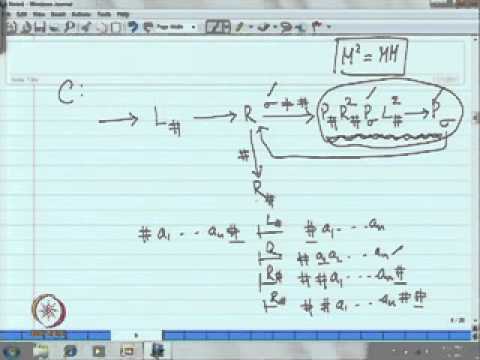 M² = MM
C:
→ L# → R σ≠# → P# R²# Pσ L²# → Pσ
#
R#
# a₁ ... aₙ # |L# # a₁ ... aₙ
|R # a₁ a₂ ... aₙ
|R# # # a₁ ... aₙ #
|R# # # a₁ ... aₙ # #